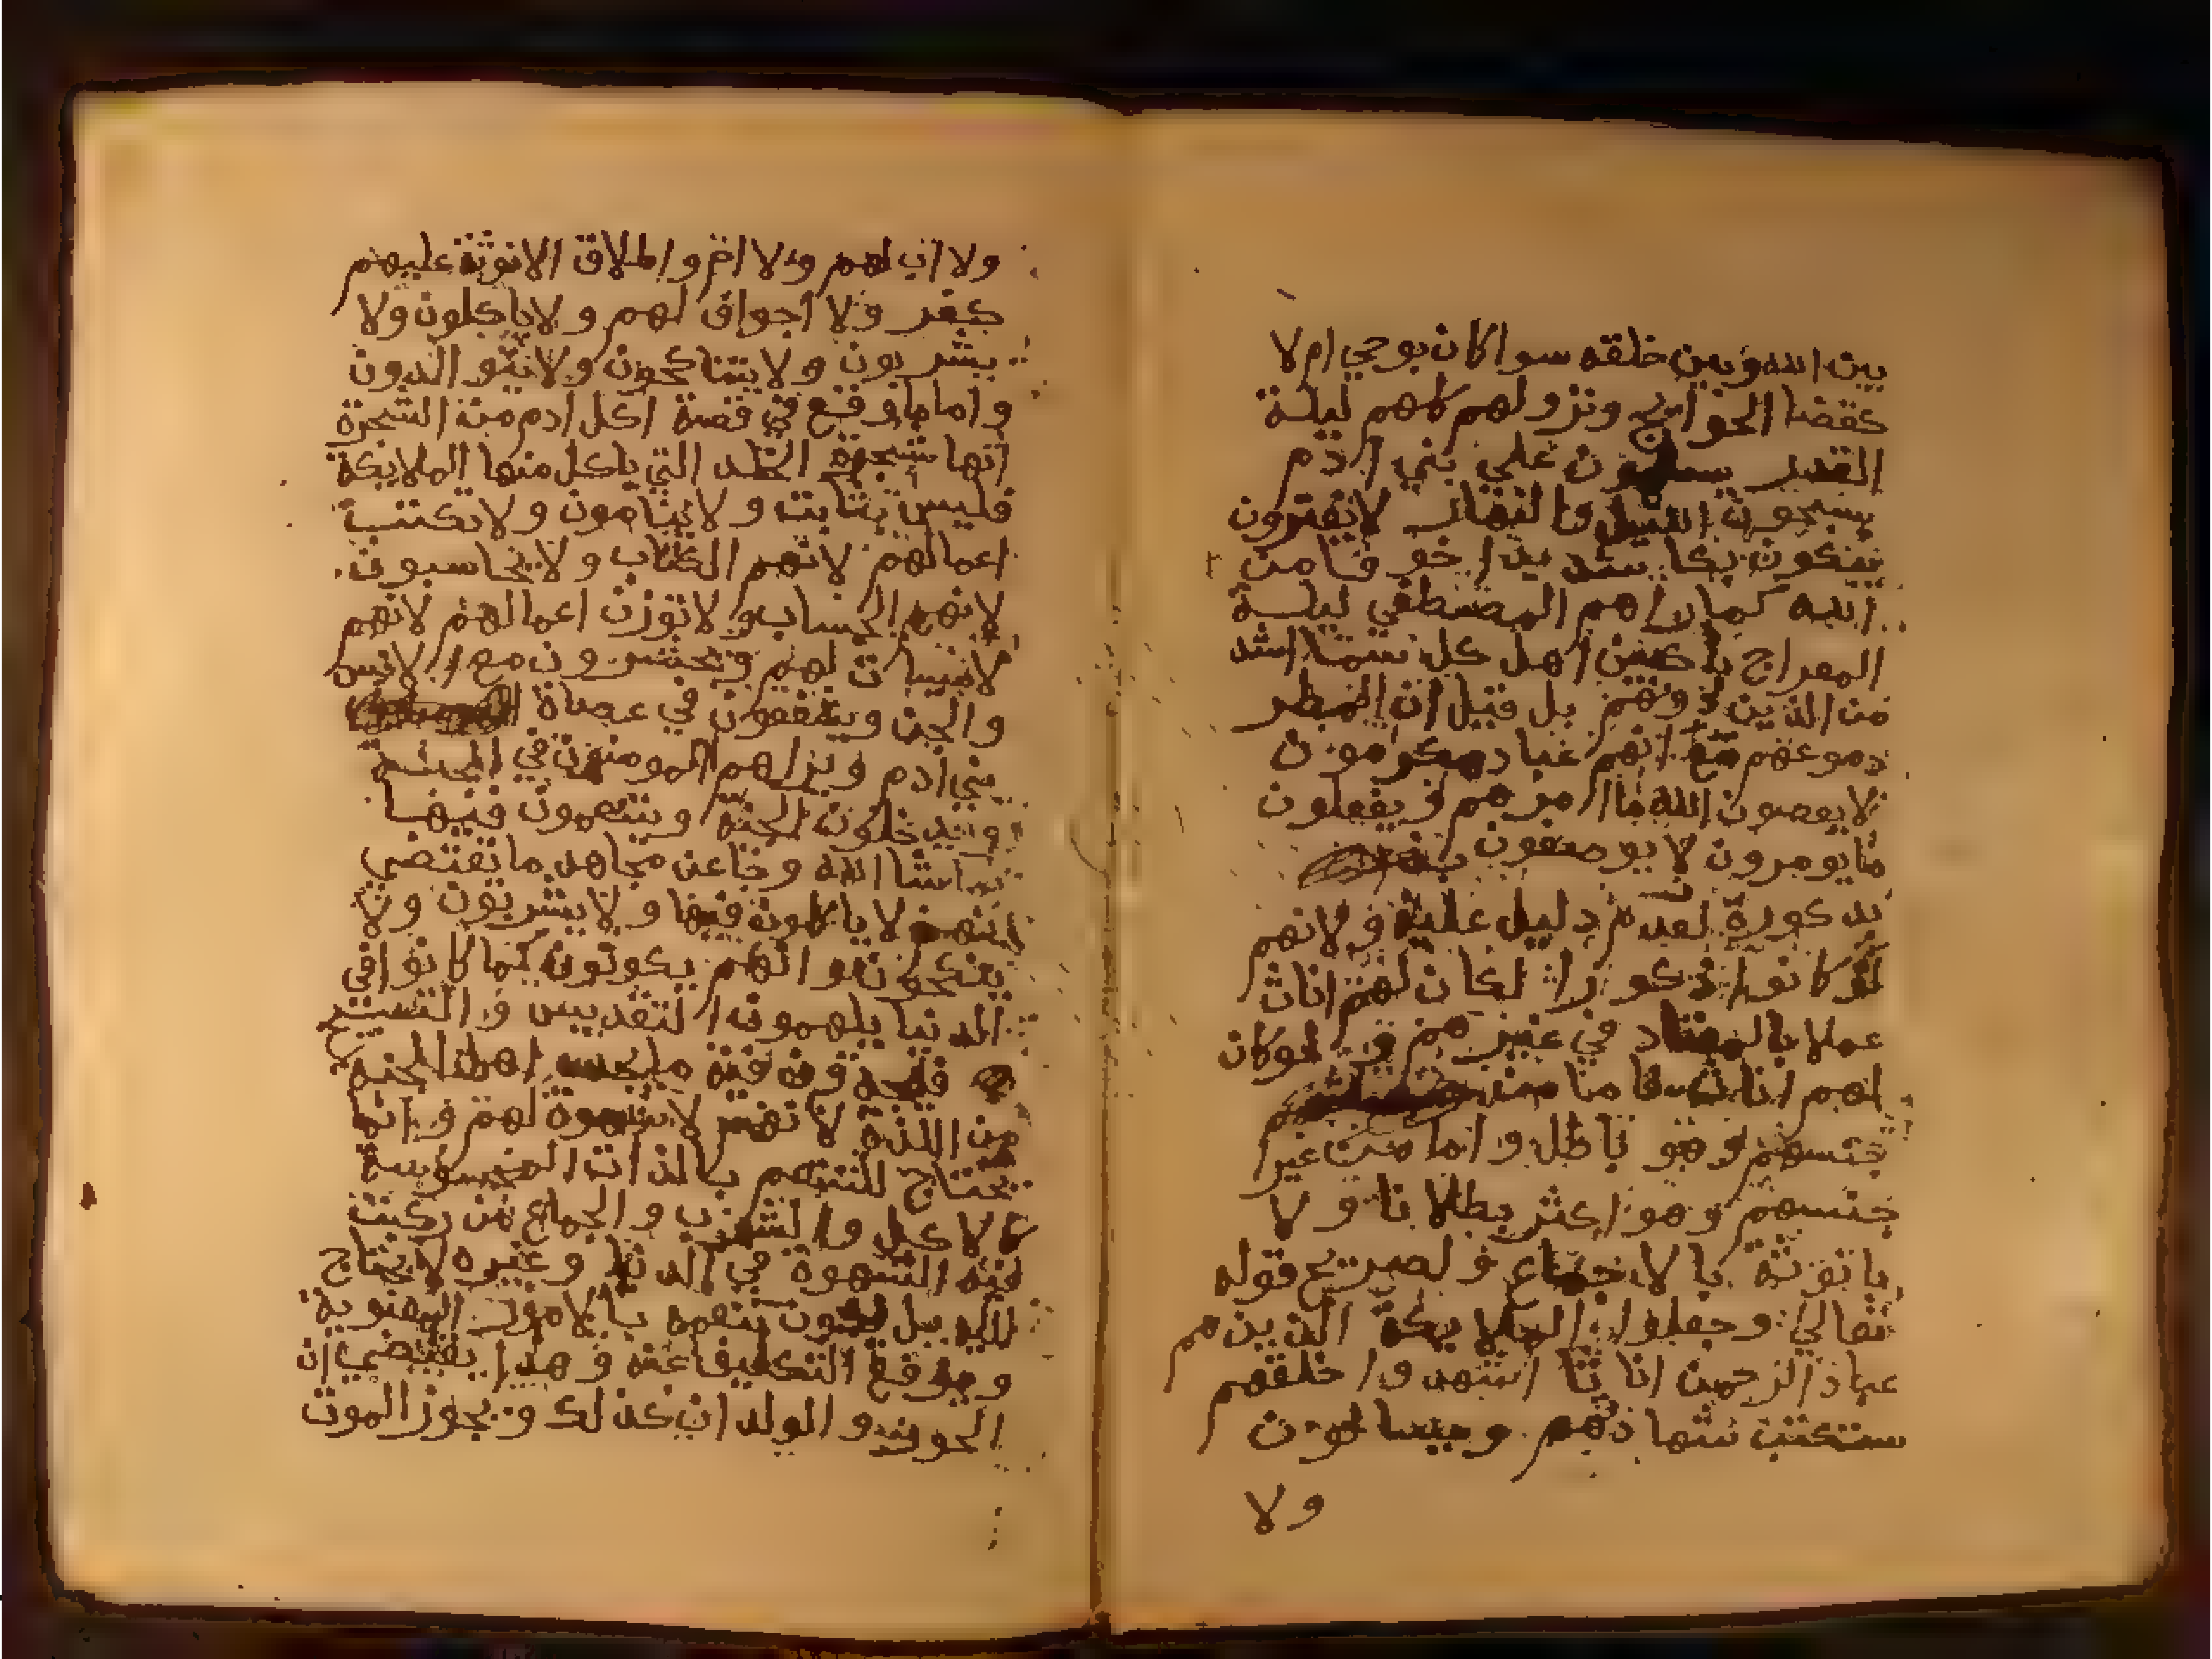 بين الله وبين خلقه سوا كان بوحي ام لا
كقضا الحوايج ونزولهم كلهم ليلة
القدر يسلمون علي بني ادم
يسبحون الليل والنهار لا يفترون
يبكون بكا شديدا خوفا من
الله كما راهم المصطفي ليلة
المعراج باكين اهل كل سما اشد
من الذين دونهم بل قيل ان المطر
دموعهم مع انهم عباد مكرمون
لا يعصون الله ما امرهم ويفعلون
ما يومرون لا يوصفون
بذكورة لعدم دليل عليه ولانهم
لو كانوا ذكورا لكان لهم اناث
عملا بالمعتاد في غيرهم ولو كان
لهم اناث فاما من
جنسهم وهو باطل واما من غير
جنسهم وهو اكثر بطلانا ولا
بانوثة بالاجماع ولصريح قوله
تعالي وجعلوا الملايكة الذين هم
عباد الرحمن اناثا اشهدوا خلقهم
ستكتب شهادتهم ويسالون
ولا
ولا اب لهم ولا ام واطلاق الانوثة عليهم
كفر ولا اجواف لهم ولا ياكلون ولا
يشربون ولا يتناكحون ولا يتوالدون
واما ما وقع في قصة اكل ادم من الشجرة
انها شجرة الخلد التي ياكل منها الملايكة
فليس بثابت ولا ينامون ولا تكتب
اعمالهم لانهم الكتاب ولا يحاسبون
لانهم الحساب ولا توزن اعمالهم لانهم
لا سيات لهم ويحشرون مع الانس
والجن ويشفعون في عصاة
بني ادم ويراهم المومنون في الجنة
ويدخلون الجنة ويتنعمون فيها
بما شا الله وجا عن مجاهد ما يقتضي
انهم لا ياكلون فيها ولا يشربون ولا
ينكحون وانهم يكونون كما كانوا في
الدنيا يلهمون التقديس والتسبيح
فيجدون فيه ما يجد اهل الجنة
من اللذة لانهم لا شهوة لهم وانما
يحتاج للتنعم بالذات المحسوسة
كالاكل والشرب والجماع من ركبت
فيه الشهوة في الدنيا وغيره لا يحتاج
لذلك بل يكون تنعمه بالامور المعنوية
ويرفع التكليف عنه وهذا يقتضي ان
الحور والولدان كذلك ويجوز الموت